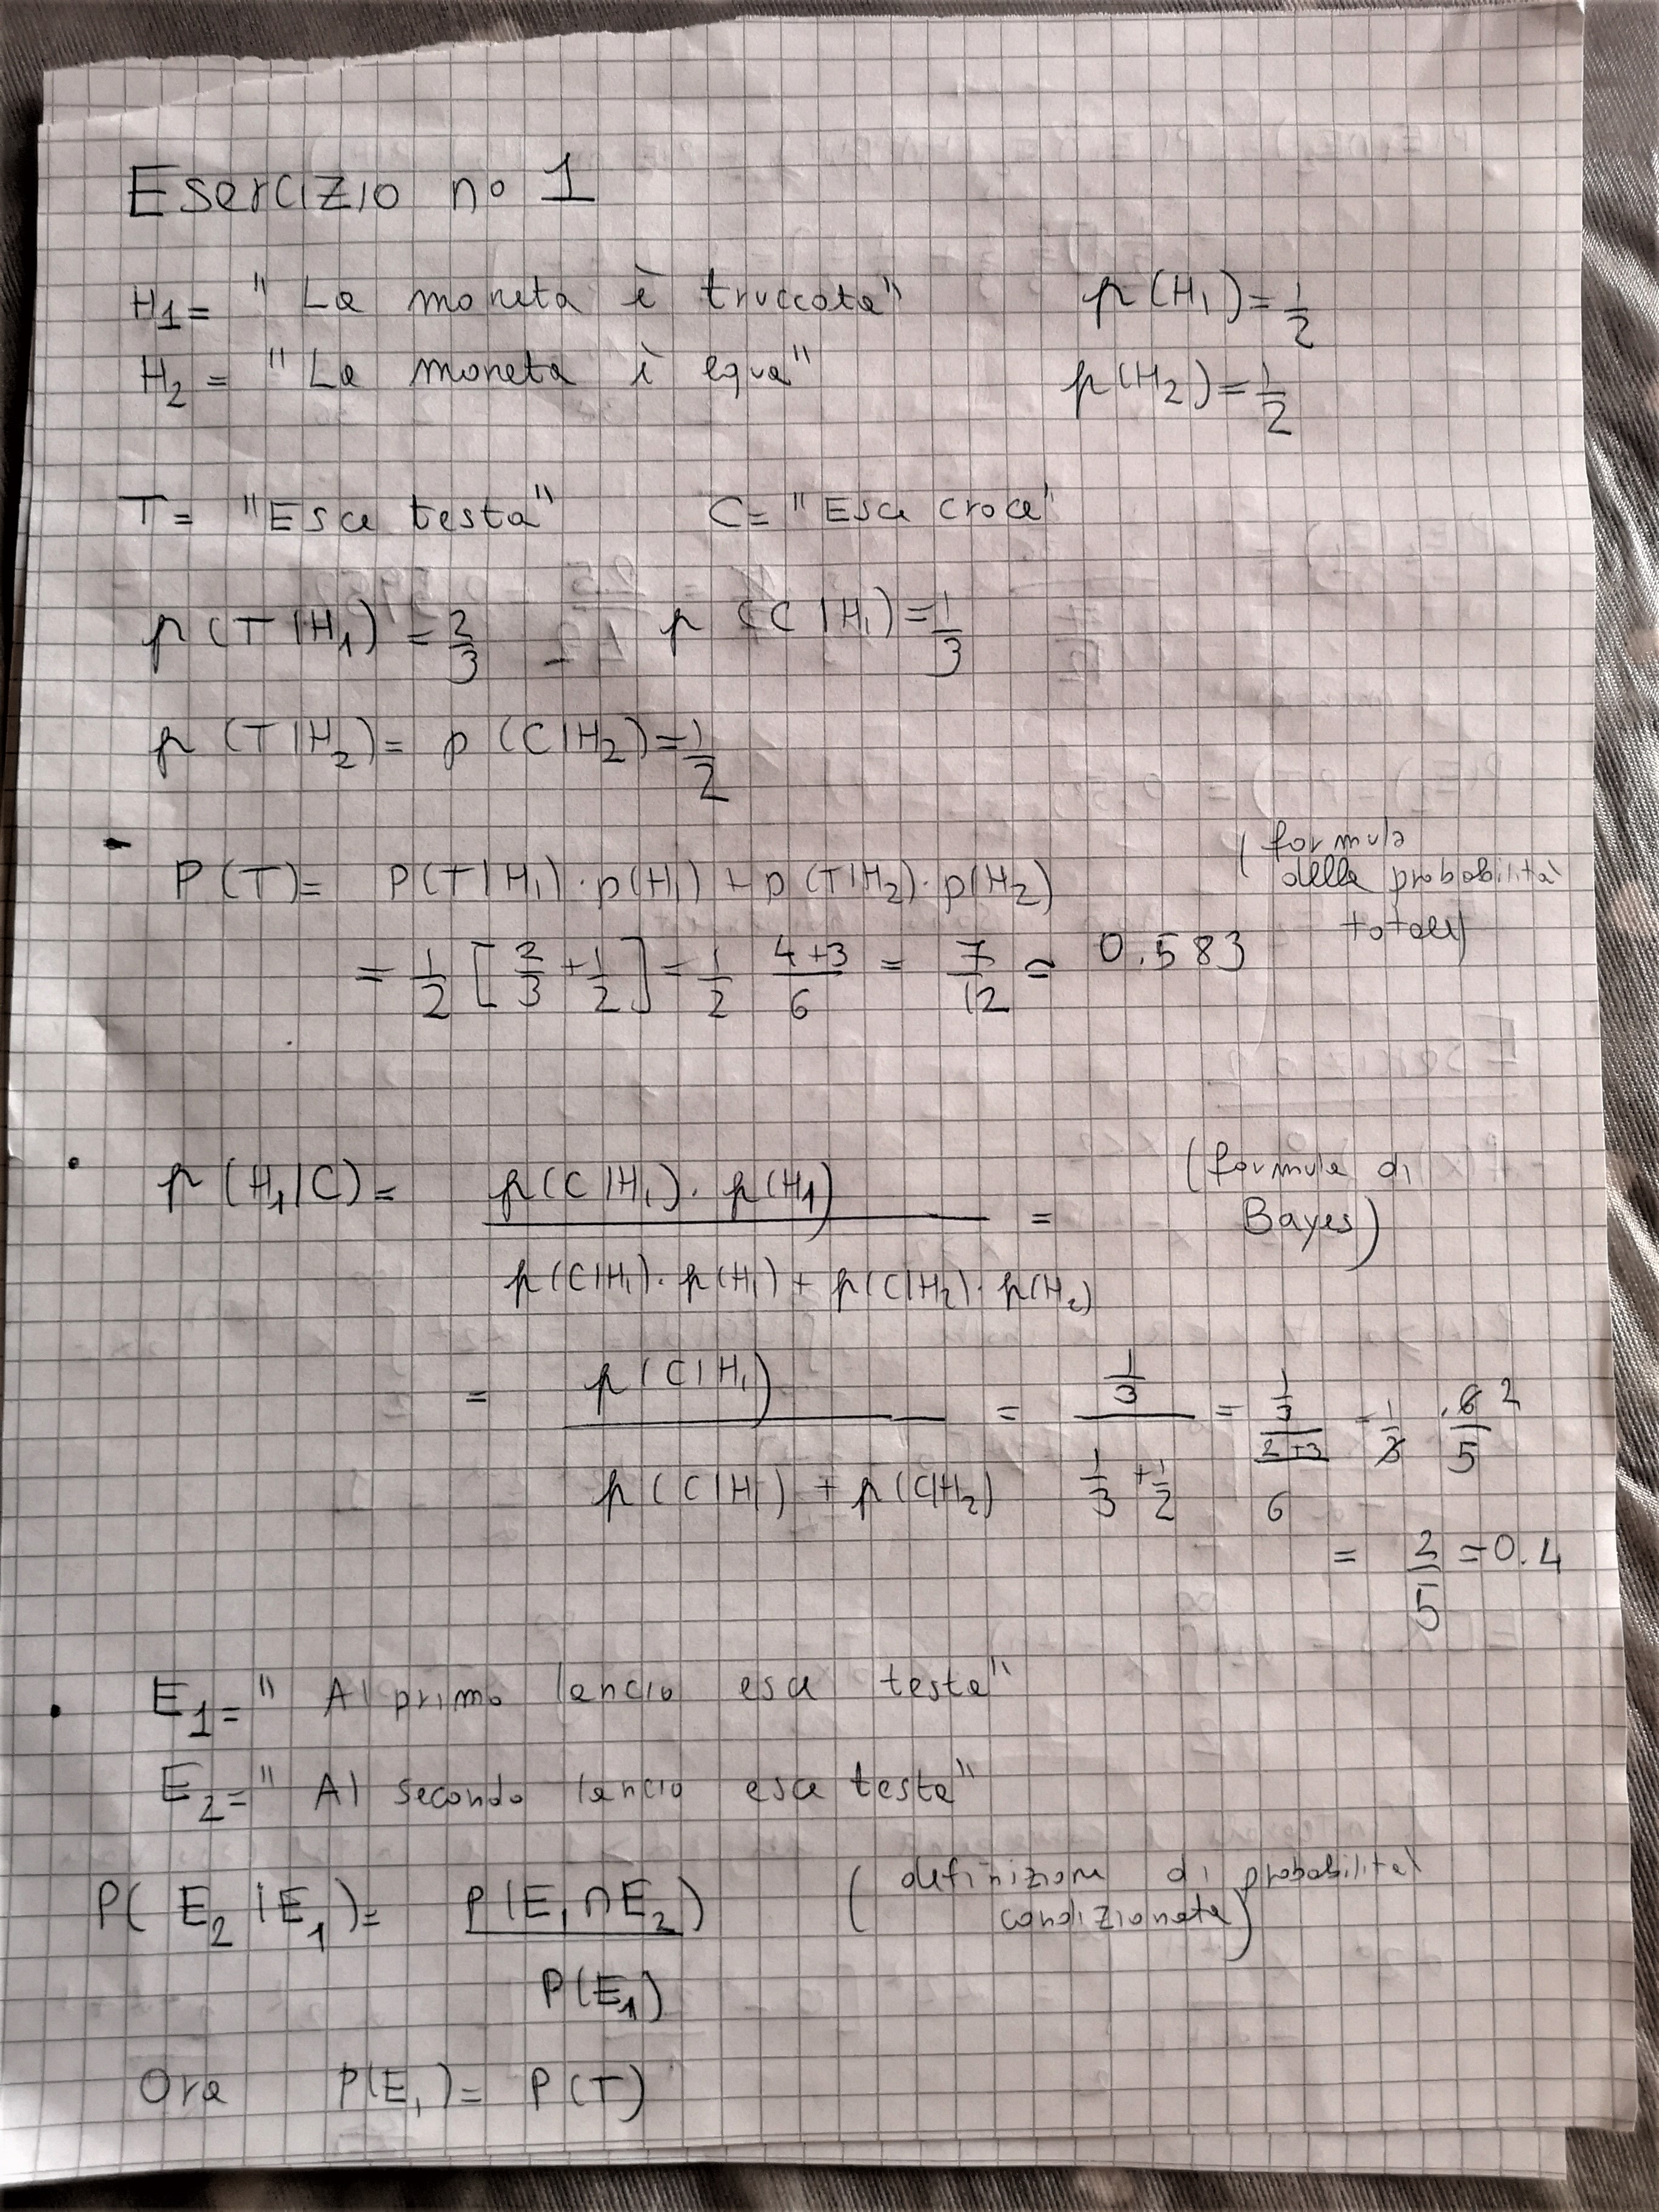 Esercizio no 1
H1= "La moneta è truccata" p(H1)=1/2
H2= "La moneta è equa" p(H2)=1/2
T= "Esce testa" C= "Esce croce"
p(T|H1)=2/3 p(C|H1)=1/3
p(T|H2)= p(C|H2)=1/2
- P(T)= P(T|H1)·p(H1)+p(T|H2)·p(H2) (formula delle probabilità totali)
= 1/2 [2/3+1/2]=1/2 4+3/6 = 7/12 = 0.583
• p(H1|C)= p(C|H1)·p(H1) / p(C|H1)·p(H1)+p(C|H2)·p(H2) = (formula di Bayes)
= p(C|H1) / p(C|H1)+p(C|H2) = 1/3 / 1/3+1/2 = 1/3 / 2+3/6 = 1/3 · 6/5 2
= 2/5 =0.4
• E1=" Al primo lancio esce testa"
E2=" Al secondo lancio esce testa"
P(E2|E1)= P(E1∩E2) / P(E1) (definizione di probabilità condizionata)
Ora P(E1)= P(T)